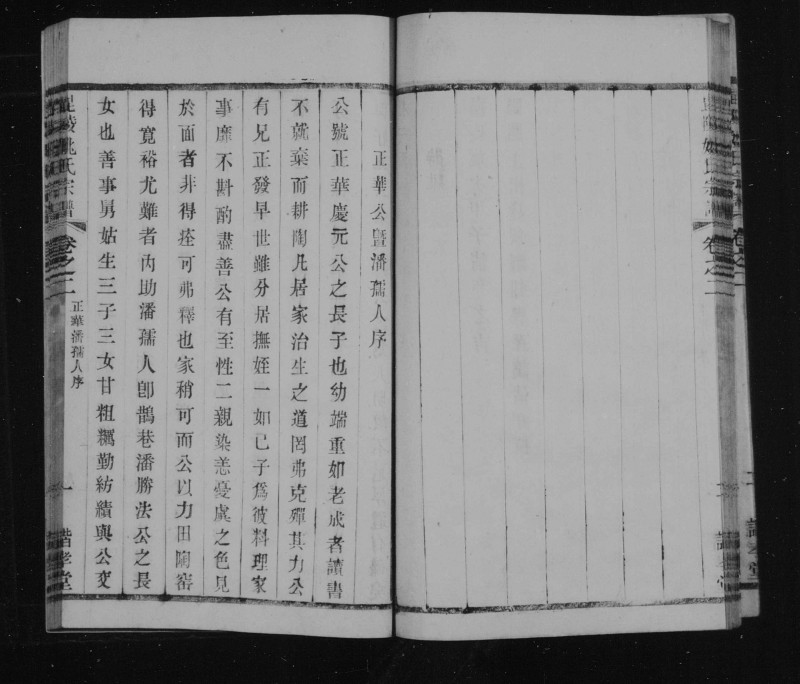 正華公曁潘孺人序
公號正華慶元公之長子也幼端重如老成者讀書
不就棄而耕陶凡居家治生之道罔弗克殫其力公
有兄正發早世雖分居撫姪一如已子爲彼料理家
事靡不斟酌盡善公有至性二親染恙憂虞之色見
於面者非得痊可弗釋也家稍可而公以力田陶窑
得寬裕尤難者內助潘孺人卽鵲巷潘勝法公之長
女也善事舅姑生三子三女甘粗糲勤紡績與公交
毘陵姚氏宗譜
卷之二
正華潘孺人序
一
諧孝堂